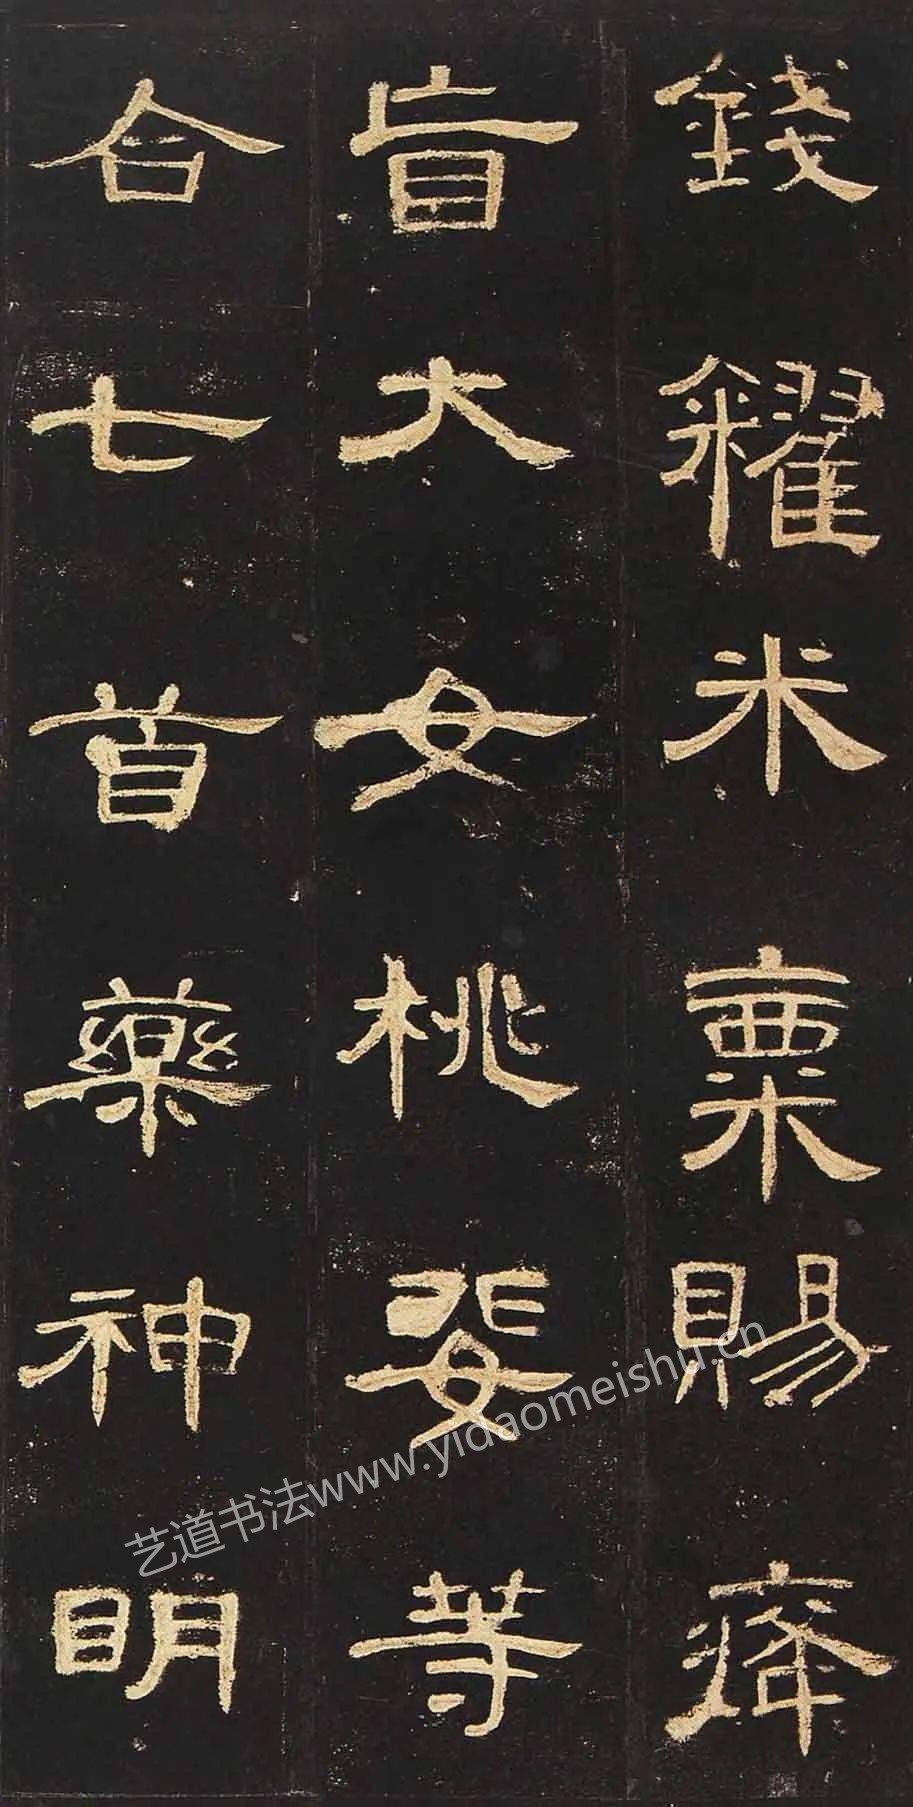 錢糴米粟賜𤸇
盲大女桃婓等
合七首藥神明
艺道书法www.yidaomeishu.cn